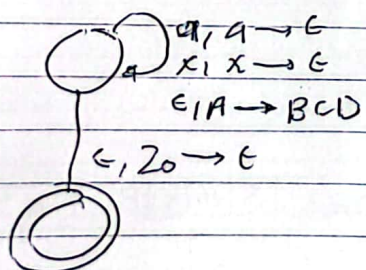 a, a → ε
x, x → ε
ε, A → BCD
ε, Z₀ → ε